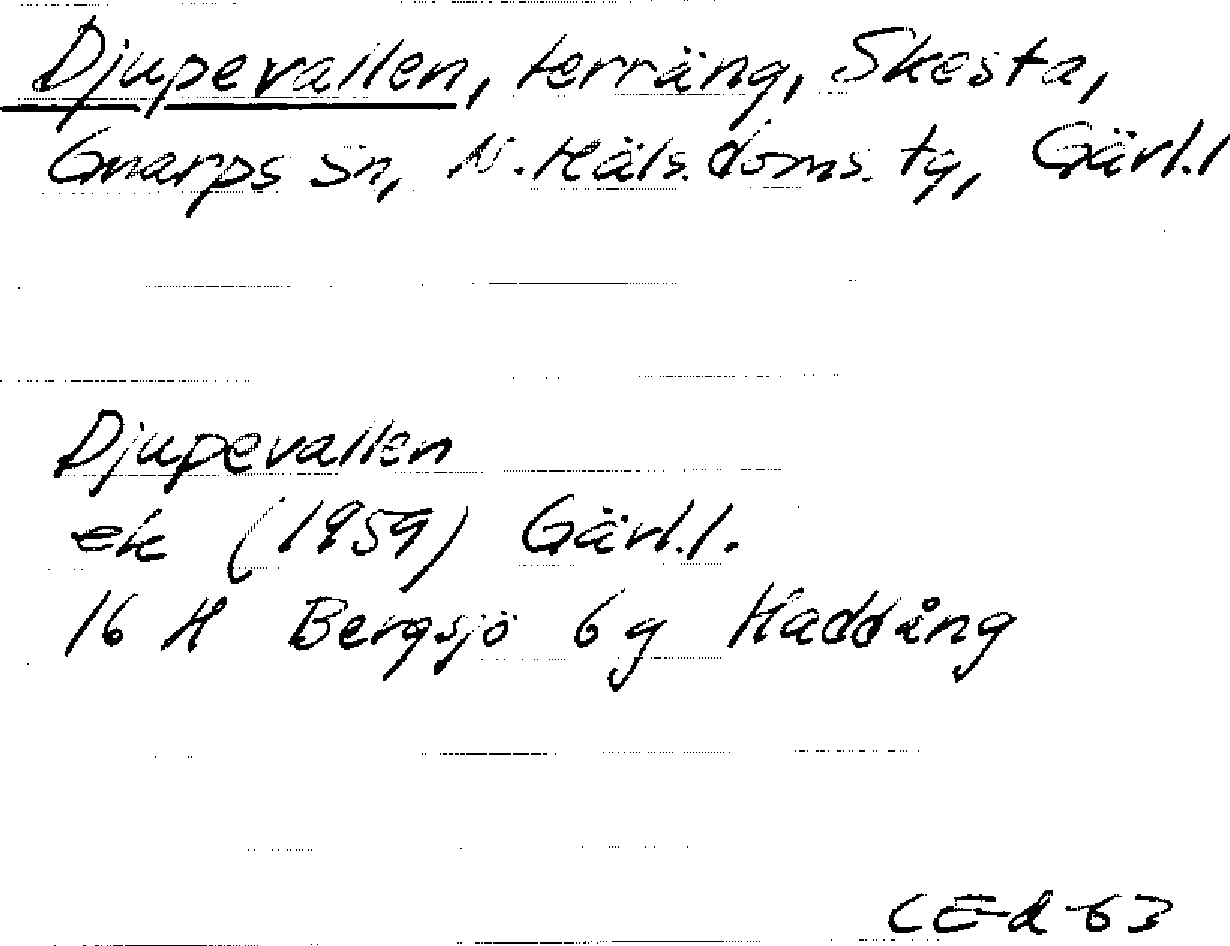 Djupevallen, terräng, Skesta,
Gnarps sn, N. Häls. doms. tg, Gävl.l
Djupevallen
ek (1959) Gävl.l.
16 H Bergsjö 6g Haddång
CE-d 63